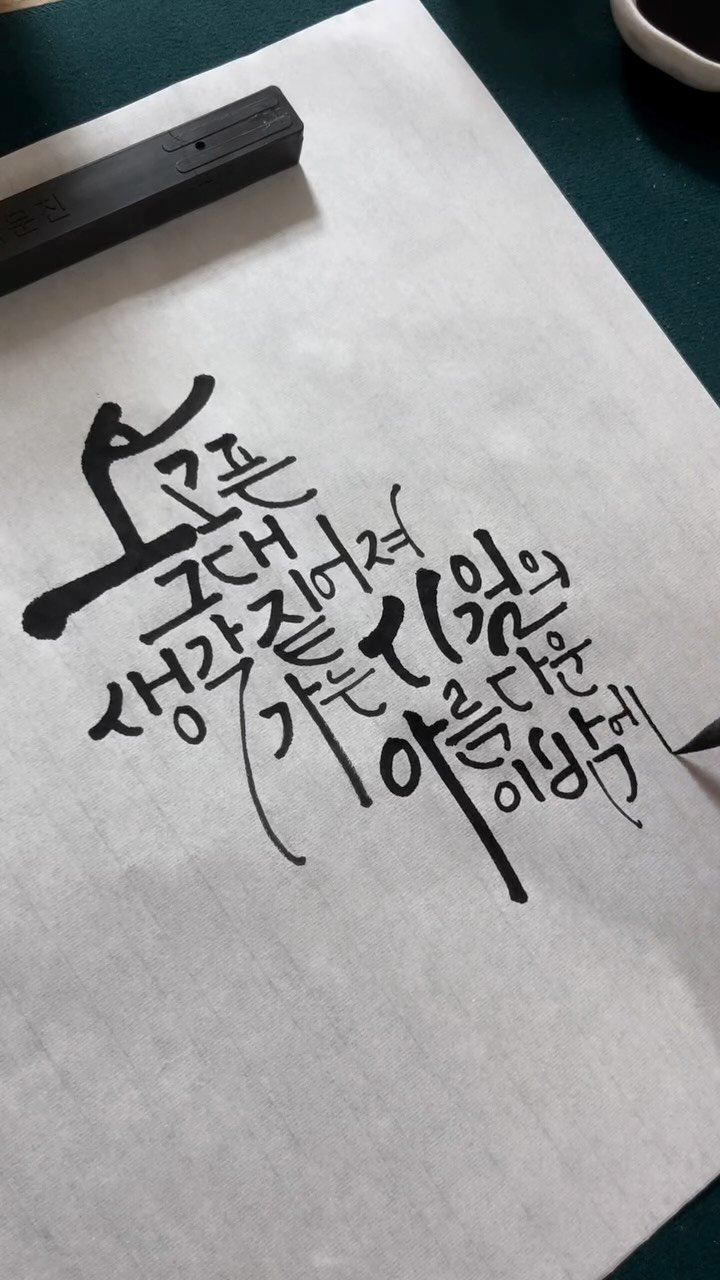 보고픈
그대
생각 짙어져
가는 시월의
아름다운
이 밤에